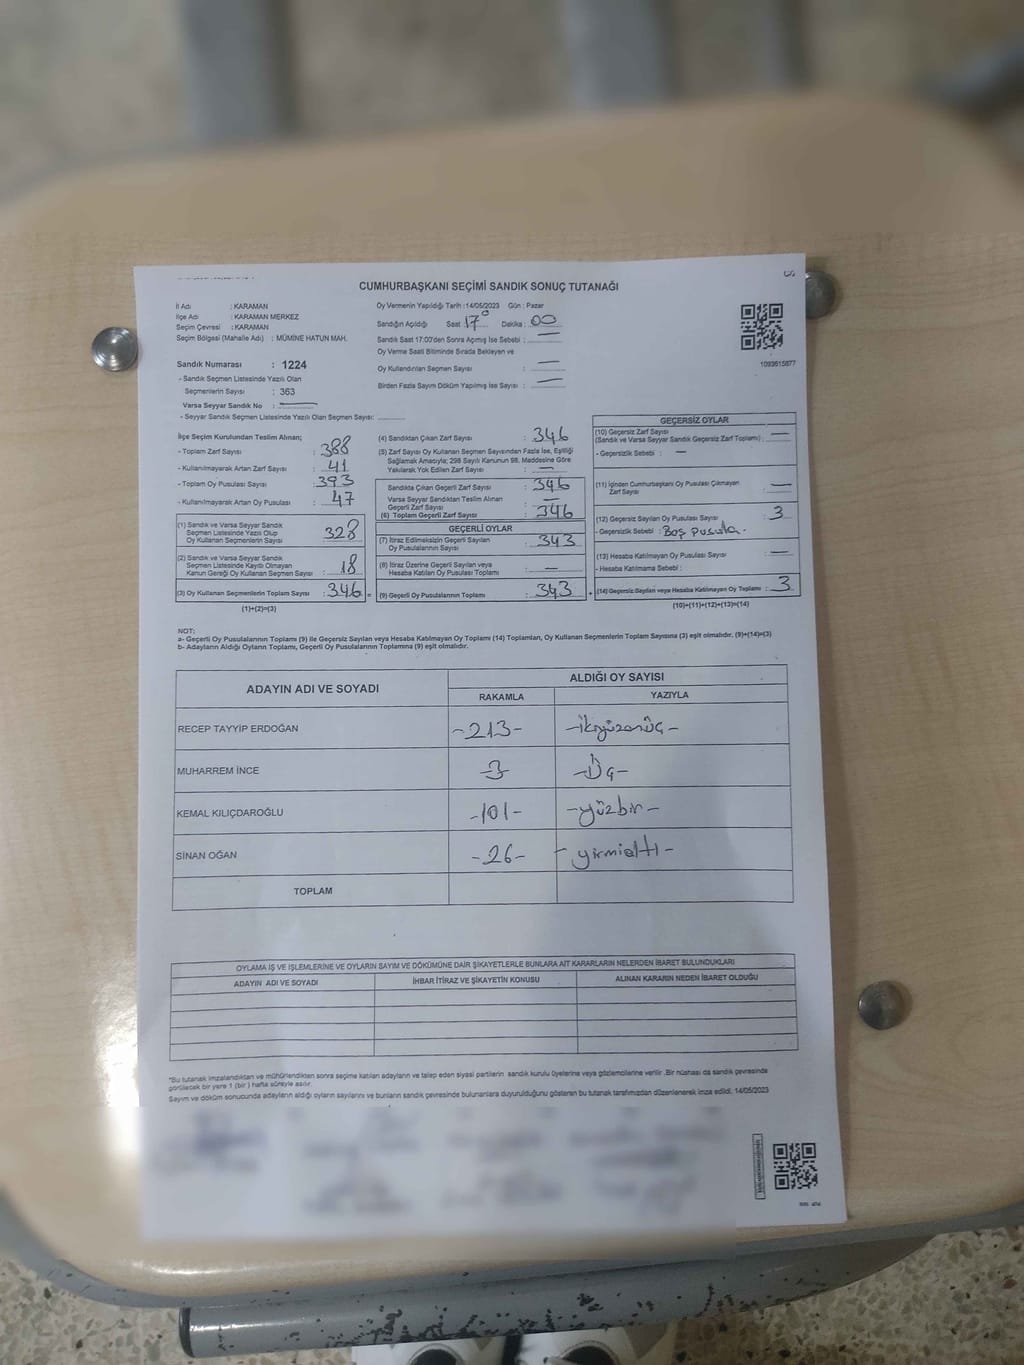 CUMHURBAŞKANI SEÇİMİ SANDIK SONUÇ TUTANAĞI
İl Adı : KARAMAN
İlçe Adı : KARAMAN MERKEZ
Seçim Çevresi : KARAMAN
Seçim Bölgesi (Mahalle Adı) : MÜMİNE HATUN MAH.
Oy Vermenin Yapıldığı Tarih :14/05/2023 Gün : Pazar
Sandığın Açıldığı Saat : 17 Dakika : 00
Sandık Saat 17:00'den Sonra Açmış İse Sebebi : —
Oy Verme Saati Bitiminde Sırada Bekleyen ve
Oy Kullandırılan Seçmen Sayısı : —
Birden Fazla Sayım Döküm Yapılmış İse Sayısı : —
1093615877
Sandık Numarası : 1224
- Sandık Seçmen Listesinde Yazılı Olan
Seçmenlerin Sayısı : 363
Varsa Seyyar Sandık No : —
- Seyyar Sandık Seçmen Listesinde Yazılı Olan Seçmen Sayısı:
İlçe Seçim Kurulundan Teslim Alınan;
- Toplam Zarf Sayısı : 388
- Kullanılmayarak Artan Zarf Sayısı : 41
- Toplam Oy Pusulası Sayısı : 393
- Kullanılmayarak Artan Oy Pusulası : 47
(1) Sandık ve Varsa Seyyar Sandık
Seçmen Listesinde Yazılı Olup
Oy Kullanan Seçmenlerin Sayısı : 328
(2) Sandık ve Varsa Seyyar Sandık
Seçmen Listesinde Kayıtlı Olmayan
Kanun Gereği Oy Kullanan Seçmen Sayısı : 18
(3) Oy Kullanan Seçmenlerin Toplam Sayısı : 346 =
(1)+(2)=(3)
(4) Sandıktan Çıkan Zarf Sayısı : 346
(5) Zarf Sayısı Oy Kullanan Seçmen Sayısından Fazla İse, Eşitliği
Sağlamak Amacıyla; 298 Sayılı Kanunun 98. Maddesine Göre
Yakılarak Yok Edilen Zarf Sayısı : —
Sandıkta Çıkan Geçerli Zarf Sayısı : 346
Varsa Seyyar Sandıktan Teslim Alınan
Geçerli Zarf Sayısı : —
(6) Toplam Geçerli Zarf Sayısı : 346
GEÇERLİ OYLAR
(7) İtiraz Edilmeksizin Geçerli Sayılan
Oy Pusulalarının Sayısı : 343
(8) İtiraz Üzerine Geçerli Sayılan veya
Hesaba Katılan Oy Pusulası Toplamı : —
(9) Geçerli Oy Pusulalarının Toplamı : 343 +
GEÇERSİZ OYLAR
(10) Geçersiz Zarf Sayısı
(Sandık ve Varsa Seyyar Sandık Geçersiz Zarf Toplamı) : —
- Geçersizlik Sebebi : —
(11) İçinden Cumhurbaşkanı Oy Pusulası Çıkmayan
Zarf Sayısı : —
(12) Geçersiz Sayılan Oy Pusulası Sayısı : 3
- Geçersizlik Sebebi : Boş pusula.
(13) Hesaba Katılmayan Oy Pusulası Sayısı : —
- Hesaba Katılmama Sebebi :
(14) Geçersiz Sayılan veya Hesaba Katılmayan Oy Toplamı : 3
(10)+(11)+(12)+(13)=(14)
NOT:
a- Geçerli Oy Pusulalarının Toplamı (9) ile Geçersiz Sayılan veya Hesaba Katılmayan Oy Toplamı (14) Toplamları, Oy Kullanan Seçmenlerin Toplam Sayısına (3) eşit olmalıdır. (9)+(14)=(3)
b- Adayların Aldığı Oyların Toplamı, Geçerli Oy Pusulalarının Toplamına (9) eşit olmalıdır.
ADAYIN ADI VE SOYADI ALDIĞI OY SAYISI
RAKAMLA YAZIYLA
RECEP TAYYİP ERDOĞAN -213- -ikiyüzonüç-
MUHARREM İNCE -3- -Üç-
KEMAL KILIÇDAROĞLU -101- -yüzbir-
SİNAN OĞAN -26- -yirmialtı-
TOPLAM
OYLAMA İŞ VE İŞLEMLERİNE VE OYLARIN SAYIM VE DÖKÜMÜNE DAİR ŞİKAYETLERLE BUNLARA AİT KARARLARIN NELERDEN İBARET BULUNDUKLARI
ADAYIN ADI VE SOYADI İHBAR İTİRAZ VE ŞİKAYETİN KONUSU ALINAN KARARIN NEDEN İBARET OLDUĞU
*Bu tutanak imzalandıktan ve mühürlendikten sonra seçime katılan adayların ve talep eden siyasi partilerin sandık kurulu üyelerine veya gözlemcilerine verilir .Bir nüshası da sandık çevresinde
görülecek bir yere 1 (bir ) hafta süreyle asılır.
Sayım ve döküm sonucunda adayların aldığı oyların sayılarını ve bunların sandık çevresinde bulunanlara duyurulduğunu gösteren bu tutanak tarafımızdan düzenlenerek imza edildi. 14/05/2023